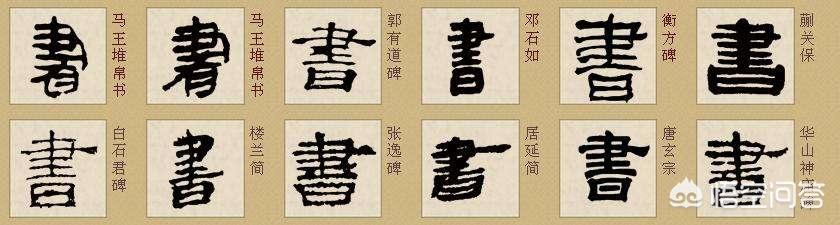 書
马王堆帛书
書
马王堆帛书
書
郭有道碑
書
邓石如
書
衡方碑
書
蒯关保
書
白石君碑
書
楼兰简
書
张逸碑
書
居延简
書
唐玄宗
書
华山神
悟空问答